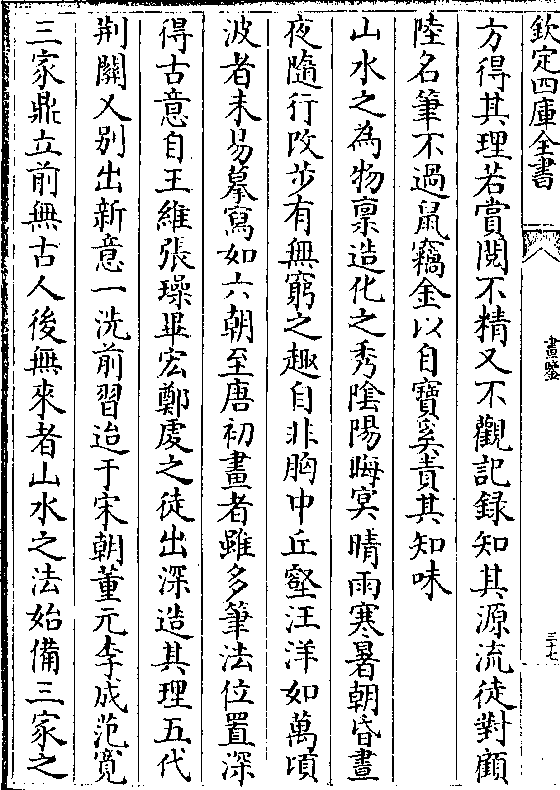 欽定四庫全書
畫鑒
三七
方得其理若賞閱不精又不觀記録知其源流徒對顧
陸名筆不過鼠竊金以自寶奚責其知味
山水之為物禀造化之秀隂陽晦㝠晴雨寒暑朝昏晝
夜隨行改歩有無窮之趣自非胸中丘壑汪洋如萬頃
波者未易摹寫如六朝至唐初畫者雖多筆法位置深
得古意自王維張璪畢宏鄭䖍之徒出深造其理五代
荆關又别出新意一洗前習迨于宋朝董元李成范寛
三家鼎立前無古人後無來者山水之法始備三家之